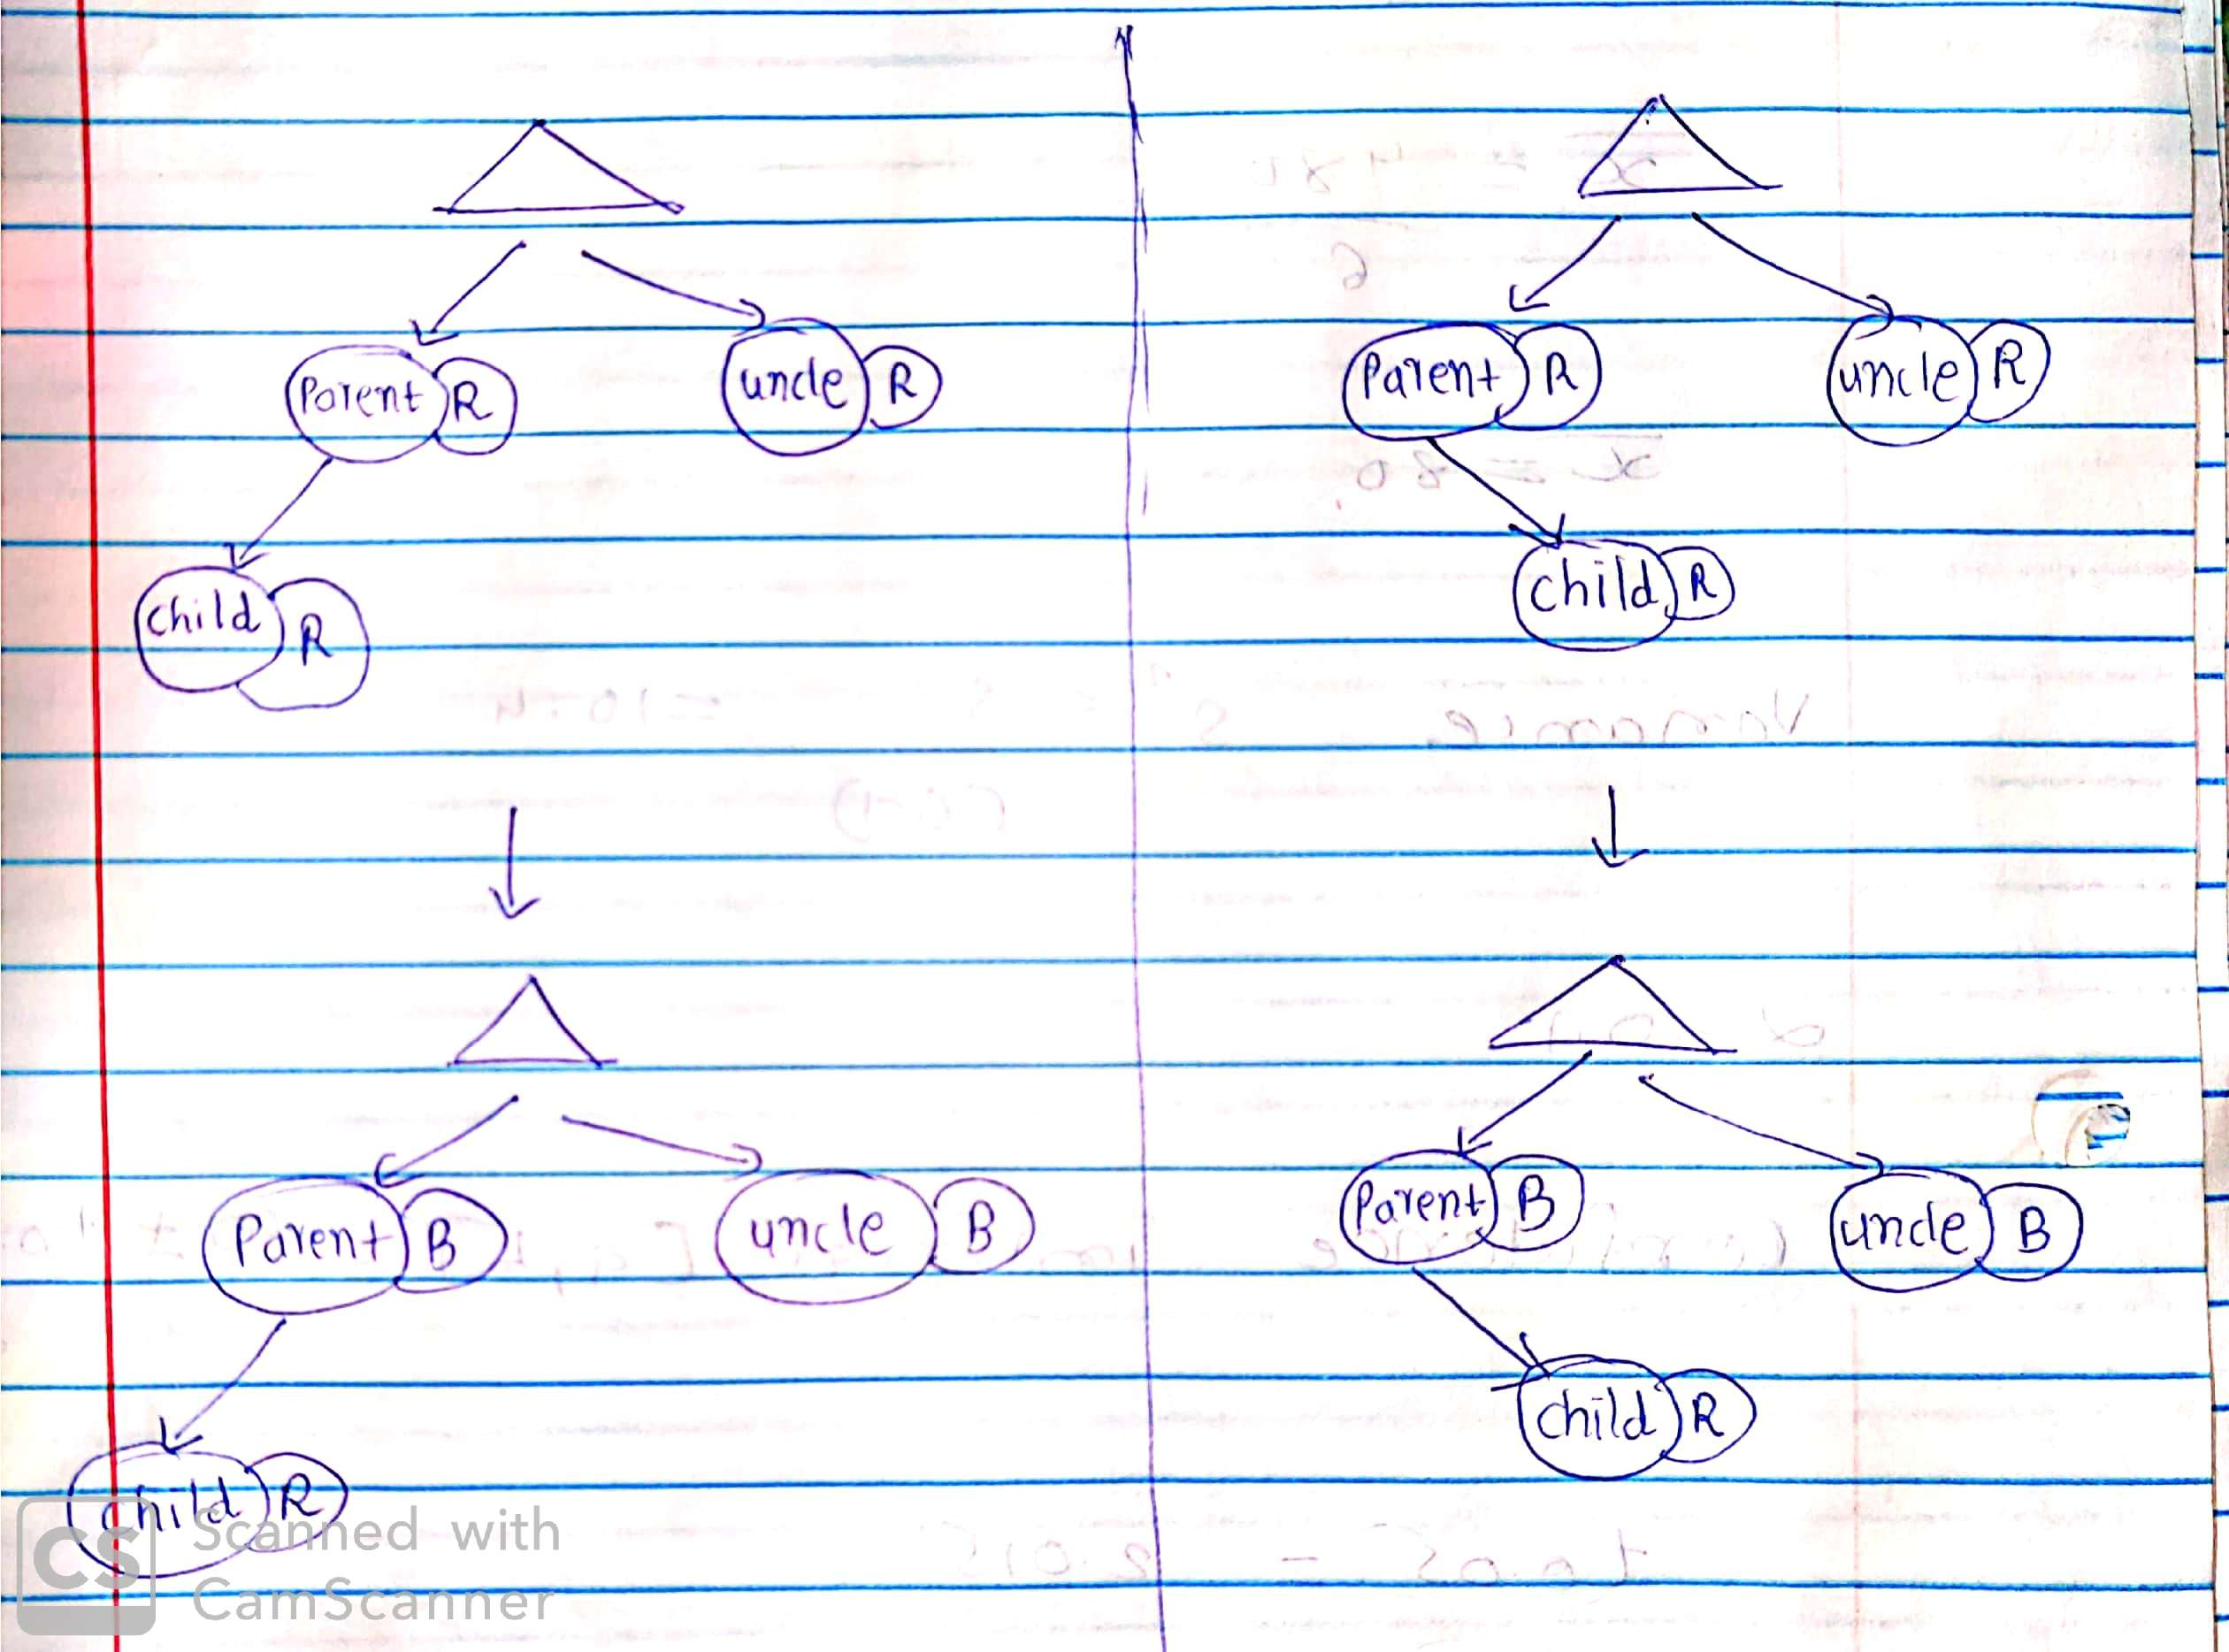 Parent R uncle R
child R
Parent R uncle R
child R
Parent B uncle B
child R
Parent B uncle B
child R
CS Scanned with
CamScanner